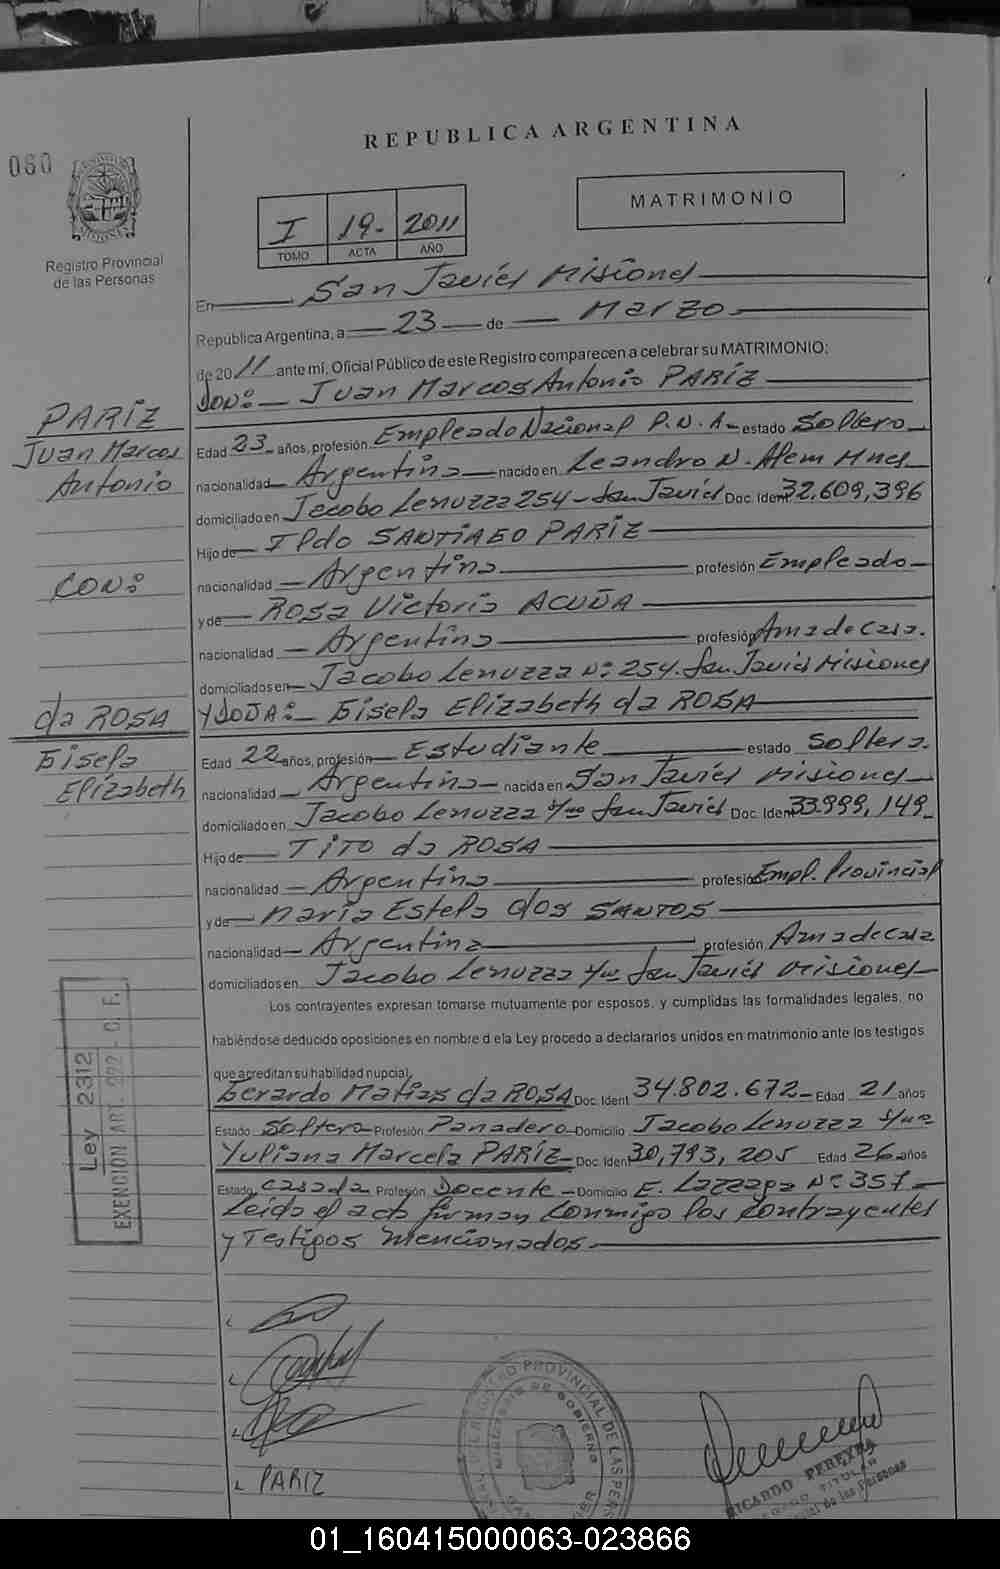 REPUBLICA ARGENTINA
060
MATRIMONIO
I 19- 2011
TOMO ACTA AÑO
Registro Provincial
de las Personas
En San Javier Misiones
República Argentina, a 23 de Marzo
de 2011 ante mi, Oficial Público de este Registro comparecen a celebrar su MATRIMONIO:
DON: Juan Marcos Antonio PARIZ
PARIZ
Juan Marcos
Antonio
Edad 23 años, profesión Empleado Nacional P.N.A- estado Soltero
nacionalidad Argentina nacido en Leandro N. Alem Mnes
domiciliado en Jacobo Lenuzza 254 - San Javier Doc. Ident 32.609,396
Hijo de Ildo SANTIAGO PARIZ
CON:
nacionalidad Argentina profesión Empleado
y de Rosa Victoria ACUÑA
nacionalidad Argentina profesión Ama de casa.
domiciliados en Jacobo Lenuzza Nº 254. San Javier Misiones
da ROSA
Gisela
Elizabeth
Y DOÑA: Gisela Elizabeth da ROSA
Edad 22 años, profesión Estudiante estado Soltera.
nacionalidad Argentina nacida en San Javier Misiones
domiciliado en Jacobo Lenuzza s/nº San Javier Doc. Ident 33.999,149
Hijo de TITO da ROSA
nacionalidad Argentina profesión Empl. Provincial
y de Maria Estela dos SANTOS
nacionalidad Argentina profesión Ama de casa
domiciliados en Jacobo Lenuzza s/nº San Javier Misiones
Los contrayentes expresan tomarse mutuamente por esposos, y cumplidas las formalidades legales, no
habiéndose deducido oposiciones en nombre d ela Ley procedo a declararlos unidos en matrimonio ante los testigos
que acreditan su habilidad nupcial
Gerardo Matias da ROSA Doc. Ident 34.802.672- Edad 21 años
Estado Soltero Profesión Panadero Domicilio Jacobo Lenuzza s/nº
Yuliana Marcela PARIZ- Doc. Ident 30,793,205 Edad 26 años
Estado Casada Profesión Docente - Domicilio E. Lazzaga Nº 357
Leida el acta firman conmigo los contrayentes
y Testigos mencionados.
Ley 2312
EXENCION ART. 292 - C. F.
PARIZ
REGISTRO PROVINCIAL DE LAS PERSONAS
MINISTERIO DE GOBIERNO
RICARDO PEREYRA
TITULAR
de las Personas
01_160415000063-023866